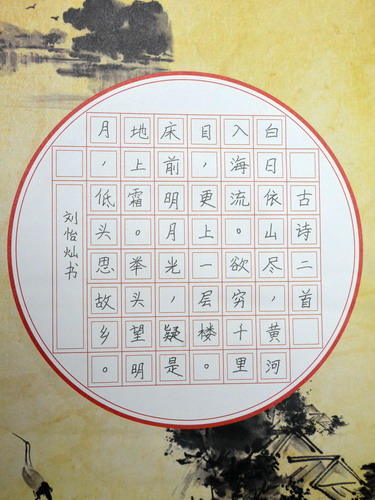 古诗二首
白日依山尽，黄河
入海流。欲穷千里
目，更上一层楼。
床前明月光，疑是
地上霜。举头望明
月，低头思故乡。
刘怡灿书